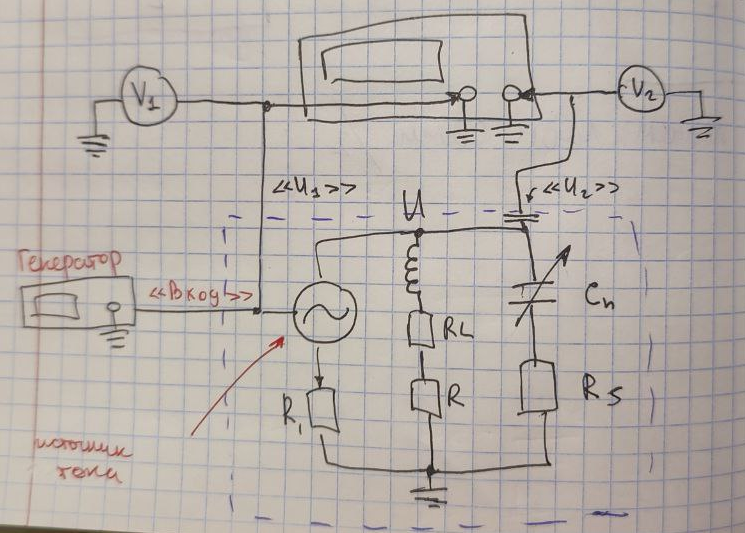 V₁
V₂
<<U₁>>
<<U₂>>
U
Генератор
<<Вход>>
Cn
RL
R
R₁
Rs
источник
тока